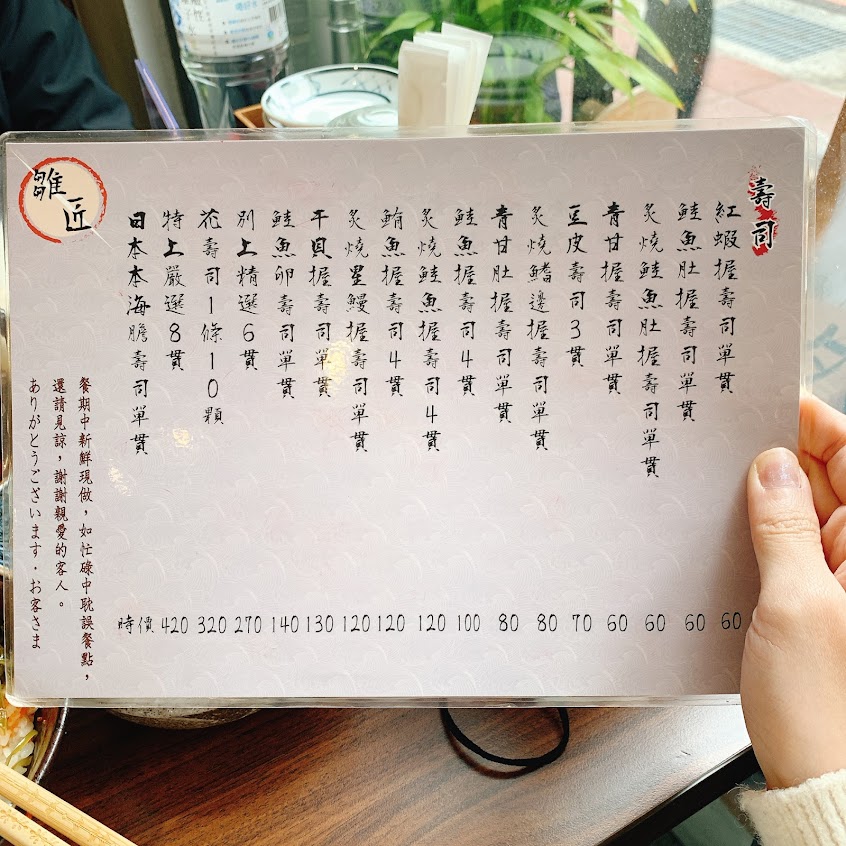 壽司
紅蝦握壽司單貫 60
鮭魚肚握壽司單貫 60
炙燒鮭魚肚握壽司單貫 60
青甘握壽司單貫 60
豆皮壽司3貫 70
炙燒鰭邊握壽司單貫 80
青甘肚握壽司單貫 80
鮭魚握壽司4貫 100
炙燒鮭魚握壽司4貫 120
鮪魚握壽司4貫 120
炙燒星鰻握壽司單貫 120
干貝握壽司單貫 130
鮭魚卵壽司單貫 140
別上精選6貫 270
花壽司1條10顆 320
特上嚴選8貫 420
日本本海膽壽司單貫 時價
雛匠
餐期中新鮮現做，如忙碌中耽誤餐點，
還請見諒，謝謝親愛的客人。
ありがとうございます・お客さま